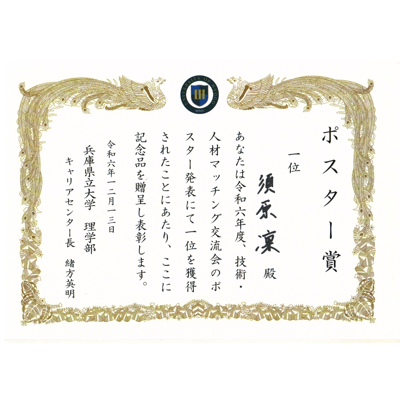 ポスター賞
一位
須原凜 殿
あなたは令和六年度、技術・
人材マッチング交流会のポ
スター発表にて一位を獲得
されたことにあたり、ここに
記念品を贈呈し表彰します。
令和六年一二月一三日
兵庫県立大学 理学部
キャリアセンター長 緒方英明